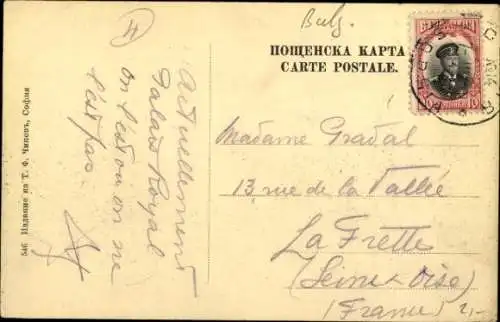 Bulg.
ПОЩЕНСКА КАРТА
CARTE POSTALE.
10
Actuellement
Palais Royal
on l'est ou on ne
l'est pas
Madame Gradal
13, rue de la Vallée
La Frette
(Seine & Oise)
(France)
546 Издание на Т. Ф. Чипевъ, София